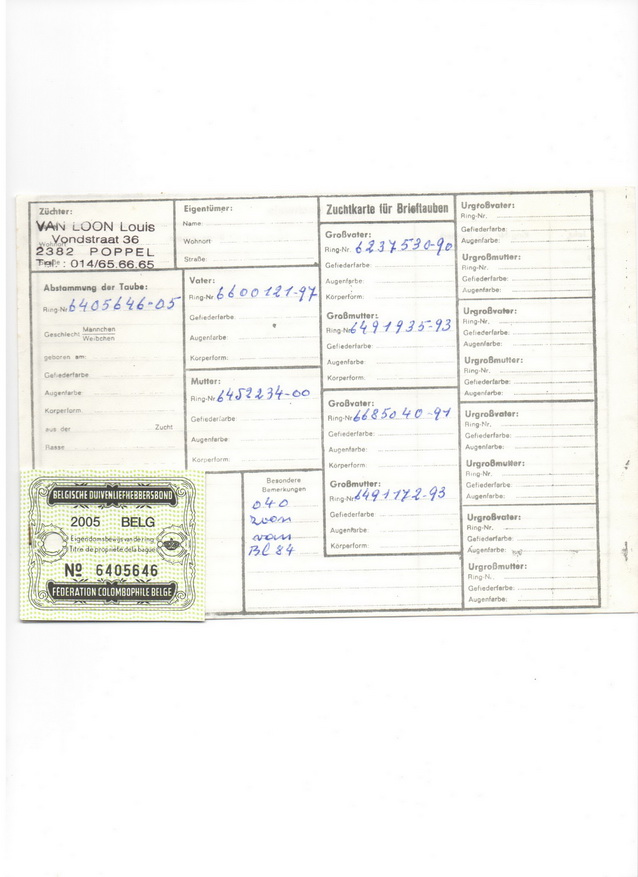 Züchter:
VAN LOON Louis
Vondstraat 36
2382 POPPEL
Tel. : 014/65.66.65
Eigentümer:
Name:
Wohnort:
Straße:
Abstammung der Taube:
Ring-Nr. 6405646-05
Geschlecht: Männchen
Weibchen
geboren am:
Gefiederfarbe
Augenfarbe
Körperform
aus der Zucht
Rasse
Vater:
Ring-Nr. 6600121-97
Gefiederfarbe:
Augenfarbe:
Körperform:
Mutter:
Ring-Nr. 6452234-00
Gefiederfarbe:
Augenfarbe:
Körperform:
Besondere
Bemerkungen
040
zoon
van
BC 84
Zuchtkarte für Brieftauben
Großvater:
Ring-Nr. 6237530-90
Gefiederfarbe:
Augenfarbe:
Körperform:
Großmutter:
Ring-Nr. 6491935-93
Gefiederfarbe:
Augenfarbe:
Körperform:
Großvater:
Ring-Nr. 6685040-91
Gefiederfarbe:
Augenfarbe:
Körperform:
Großmutter:
Ring-Nr. 6491172-93
Gefiederfarbe:
Augenfarbe:
Körperform:
Urgroßvater:
Ring-Nr.
Gefiederfarbe:
Augenfarbe:
Urgroßmutter:
Ring-Nr.
Gefiederfarbe:
Augenfarbe:
Urgroßvater:
Ring-Nr.
Gefiederfarbe:
Augenfarbe:
Urgroßmutter:
Ring-Nr.
Gefiederfarbe:
Augenfarbe:
Urgroßvater:
Ring-Nr.
Gefiederfarbe:
Augenfarbe:
Urgroßmutter:
Ring-Nr.
Gefiederfarbe:
Augenfarbe:
Urgroßvater:
Ring-Nr.
Gefiederfarbe:
Augenfarbe:
Urgroßmutter:
Ring-Nr.
Gefiederfarbe:
Augenfarbe:
BELGISCHE DUIVENLIEFHEBBERSBOND
2005 BELG
Eigendomsbewijs van de ring
Titre de propriété de la bague
Nº 6405646
FÉDÉRATION COLOMBOPHILE BELGE